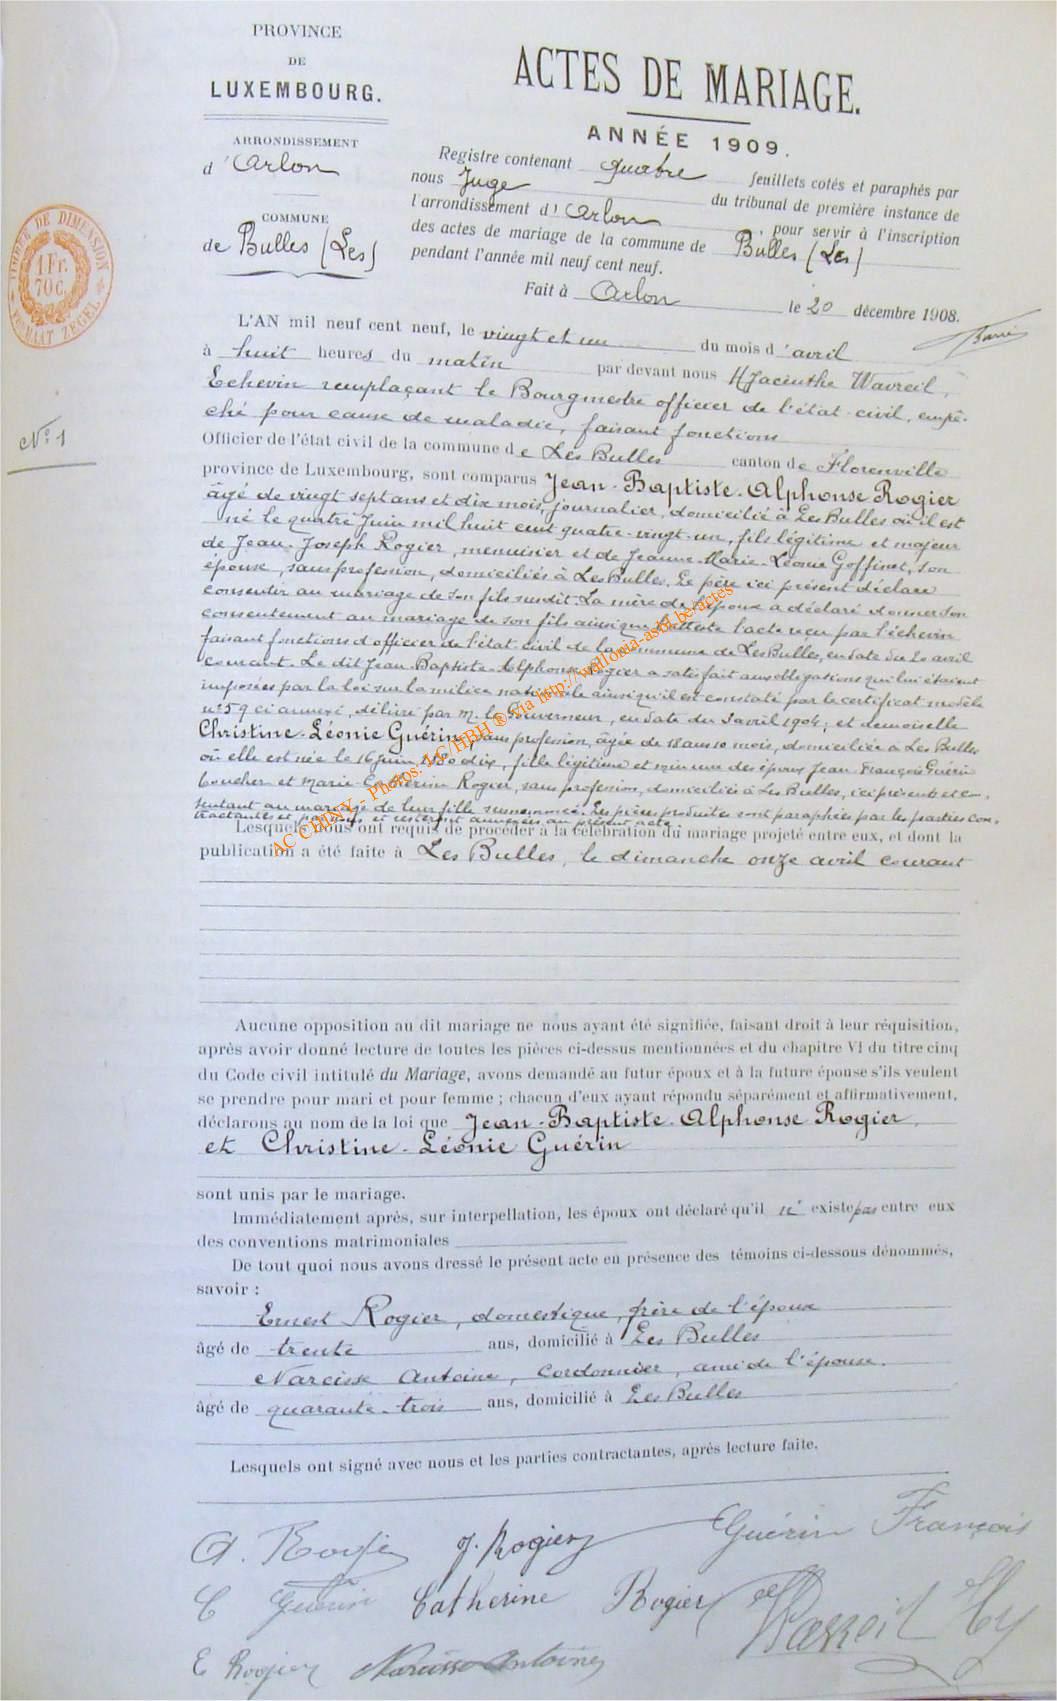 PROVINCE
DE
LUXEMBOURG.
ARRONDISSEMENT
d'Arlon
COMMUNE
de Bulles (Les)
TIMBRE DE DIMENSION
1 Fr.
70 C.
FORMAAT ZEGEL
ACTES DE MARIAGE.
ANNÉE 1909.
Registre contenant quatre feuillets cotés et paraphés par
nous Juge du tribunal de première instance de
l'arrondissement d'Arlon, pour servir à l'inscription
des actes de mariage de la commune de Bulles (Les)
pendant l'année mil neuf cent neuf.
Fait à Arlon le 20 décembre 1908.
N° 1
L'AN mil neuf cent neuf, le vingt et un du mois d'avril
à huit heures du matin par devant nous Hyacinthe Wavreil,
Echevin remplaçant le Bourgmestre officier de l'état civil, empê-
ché pour cause de maladie, faisant fonctions
Officier de l'état civil de la commune de Les Bulles canton de Florenville
province de Luxembourg, sont comparus Jean-Baptiste-Alphonse Rogier
âgé de vingt sept ans et dix mois, journalier, domicilié à Les Bulles où il est
né le quatre Juin mil huit cent quatre-vingt-un, fils légitime et majeur
de Jean-Joseph Rogier, menuisier et de Jeanne-Marie-Léonie Goffinet, son
épouse, sans profession, domiciliés à Les Bulles. Le père ici présent déclare
consentir au mariage de son fils susdit. La mère de l'époux a déclaré donner son
consentement au mariage de son fils ainsi que l'atteste l'acte reçu par l'échevin
faisant fonctions d'officier de l'état-civil de la commune de Les Bulles, en date du 20 avril
courant. Le dit Jean-Baptiste-Alphonse Rogier a satisfait aux obligations qui lui étaient
imposées par la loi sur la milice nationale ainsi qu'il est constaté par le certificat modèle
n° 59 ci annexé, délivré par M. le Gouverneur, en date du 2 avril 1904; et demoiselle
Christine-Léonie Guérin, sans profession, âgée de 18 ans 10 mois, domiciliée à Les Bulles
où elle est née le 16 juin 1890 dix, fille légitime et mineure des époux Jean-François Guérin
boucher et Marie-Catherine Rogier, sans profession, domiciliés à Les Bulles, ici présents et con-
sentant au mariage de leur fille susnommée. Les pièces produites sont paraphées par les parties con-
tractantes et par nous et resteront annexées au présent acte
Lesquels nous ont requis de procéder à la célébration du mariage projeté entre eux, et dont la
publication a été faite à Les Bulles, le dimanche onze avril courant
AC CHINY - Photos: LC/HBH ® via http://wallonia-asbl.be/actes
Aucune opposition au dit mariage ne nous ayant été signifiée, faisant droit à leur réquisition,
après avoir donné lecture de toutes les pièces ci-dessus mentionnées et du chapitre VI du titre cinq
du Code civil intitulé du Mariage, avons demandé au futur époux et à la future épouse s'ils veulent
se prendre pour mari et pour femme ; chacun d'eux ayant répondu séparément et affirmativement,
déclarons au nom de la loi que Jean-Baptiste-Alphonse Rogier,
et Christine-Léonie Guérin
sont unis par le mariage.
Immédiatement après, sur interpellation, les époux ont déclaré qu'il n' existe pas entre eux
des conventions matrimoniales
De tout quoi nous avons dressé le présent acte en présence des témoins ci-dessous dénommés,
savoir :
Ernest Rogier, domestique, frère de l'époux
âgé de trente ans, domicilié à Les Bulles
Narcisse Antoine, Cordonnier, ami de l'épouse.
âgé de quarante-trois ans, domicilié à Les Bulles
Lesquels ont signé avec nous et les parties contractantes, après lecture faite.
A. Rogier J. Rogier Guérin François
C Guérin Catherine Rogier Wavreil Hy
E Rogier Narcisse Antoine